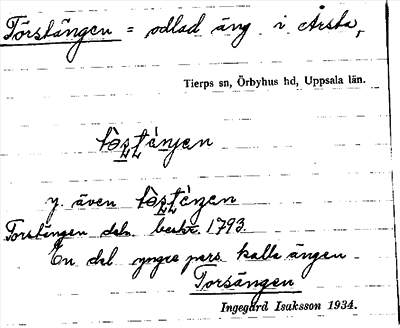 Torstängen = odlad äng i Årsta,
Tierps sn, Örbyhus hd, Uppsala län.
y. även
Torstängen dels. beskr. 1793.
En del yngre pers. kalla ängen
Torsängen
Ingegärd Isaksson 1934.